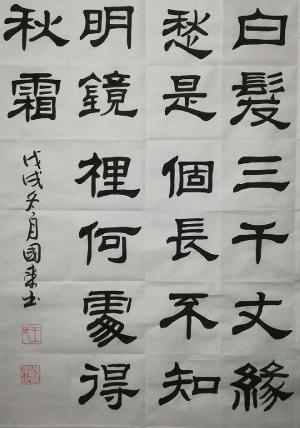 白髮三千丈緣
愁是個長不知
明鏡裡何處得
秋霜
戊戌冬月国书